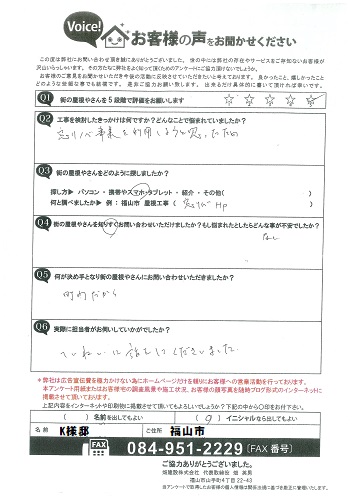 Voice!
お客様の声をお聞かせください
この度は弊社にお問い合わせ頂き誠にありがとうございました。世の中には弊社の存在やサービスをご存知ないお客様が
沢山いらっしゃいます。その方たちに弊社をよく知って頂くためのアンケートにご協力頂けないでしょうか。
お客様のご意見をお聞かせいただき今後の活動に反映させていただきたいと考えております。良かったこと、嬉しかったこと
どのような些細な事でも結構です。是非ご協力お願い致します。出来るだけ具体的に書いて頂ければ幸いです。
Q1 街の屋根やさんを5段階で評価をお願いします ☆ ☆ ☆ ☆ ☆
Q2 工事を検討したきっかけは何ですか？どんなことで悩まれていましたか？
を利用しようと思ったため
Q3 街の屋根やさんをどのように探しましたか？
探し方▶ パソコン・携帯やスマホ・タブレット・紹介・その他( )
何と調べましたか▶ 例：福山市 屋根工事( HP )
Q4 街の屋根やさんを知りすぐお問い合わせいただけましたか？もし悩まれたとしたらどんな事が不安でしたか？
なし
Q5 何が決め手となり街の屋根やさんにお問い合わせいただきましたか？
だから
Q6 実際に担当者がお伺いしていかがでしたか？
ていねいに話をしてくださいました
※弊社は広告宣伝費を極力かけない為にホームページだけを頼りにお客様への営業活動を行っております。
本アンケート用紙またはお客様宅の調査風景や施工状況、お客様の顔写真を随時ブログ形式のインターネットに
掲載させて頂いております。
上記内容をインターネットや印刷物に掲載させて頂いてもよろしいでしょうか？下記の中から○印をお付け下さい。
( )名前を出してもよい ( ○ )イニシャルなら出してもよい
名前 K様邸 ご住所 福山市
FAX 084-951-2229 (FAX 番号)
ご協力ありがとうございました。
代表取締役 畑 英男
福山市山手町4丁目22-43
当アンケートで収集したお客様の個人情報は関係法規に基づき厳正に管理いたします。